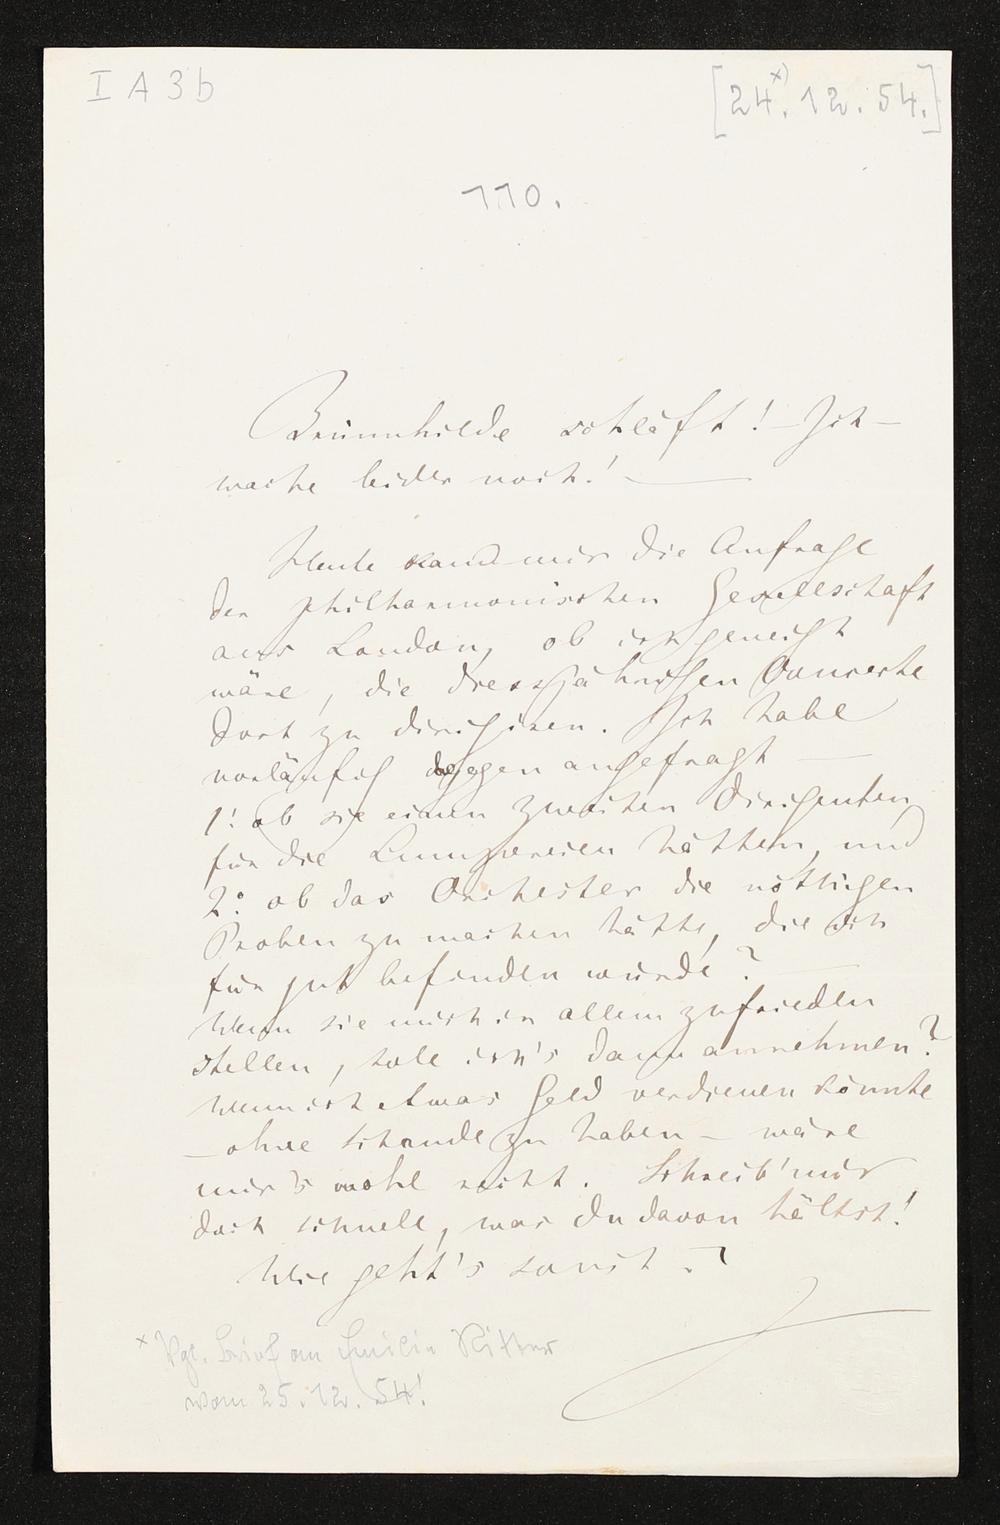 I A 3 b
[24.x) 12. 54.]
110.
Brünnhilde schläft! – Ich –
wache leider noch! —
Heute kam mir die Anfrage
der philharmonischen Gesellschaft
aus London, ob ich geneigt
wäre, die diessjährigen Concerte
dort zu dirigiren. Ich habe
vorläufig dagegen angefragt —
1! ob sie einen zweiten Dirigenten
für die Lumpereien hätten, und
2: ob das Orchester die nöthigen
Proben zu machen hätte, die ich
für gut befinden würde? —
Wenn sie mich in allem zufrieden
stellen, soll ich's dann annehmen?
Wenn ich etwas Geld verdienen könnte
– ohne Schande zu haben – wäre
mir's wohl recht. Schreib' mir
doch schnell, was du davon hältst!
Wie geht's sonst?
x Vgl. Brief an Emilie Ritter
vom 25. 12. 54!